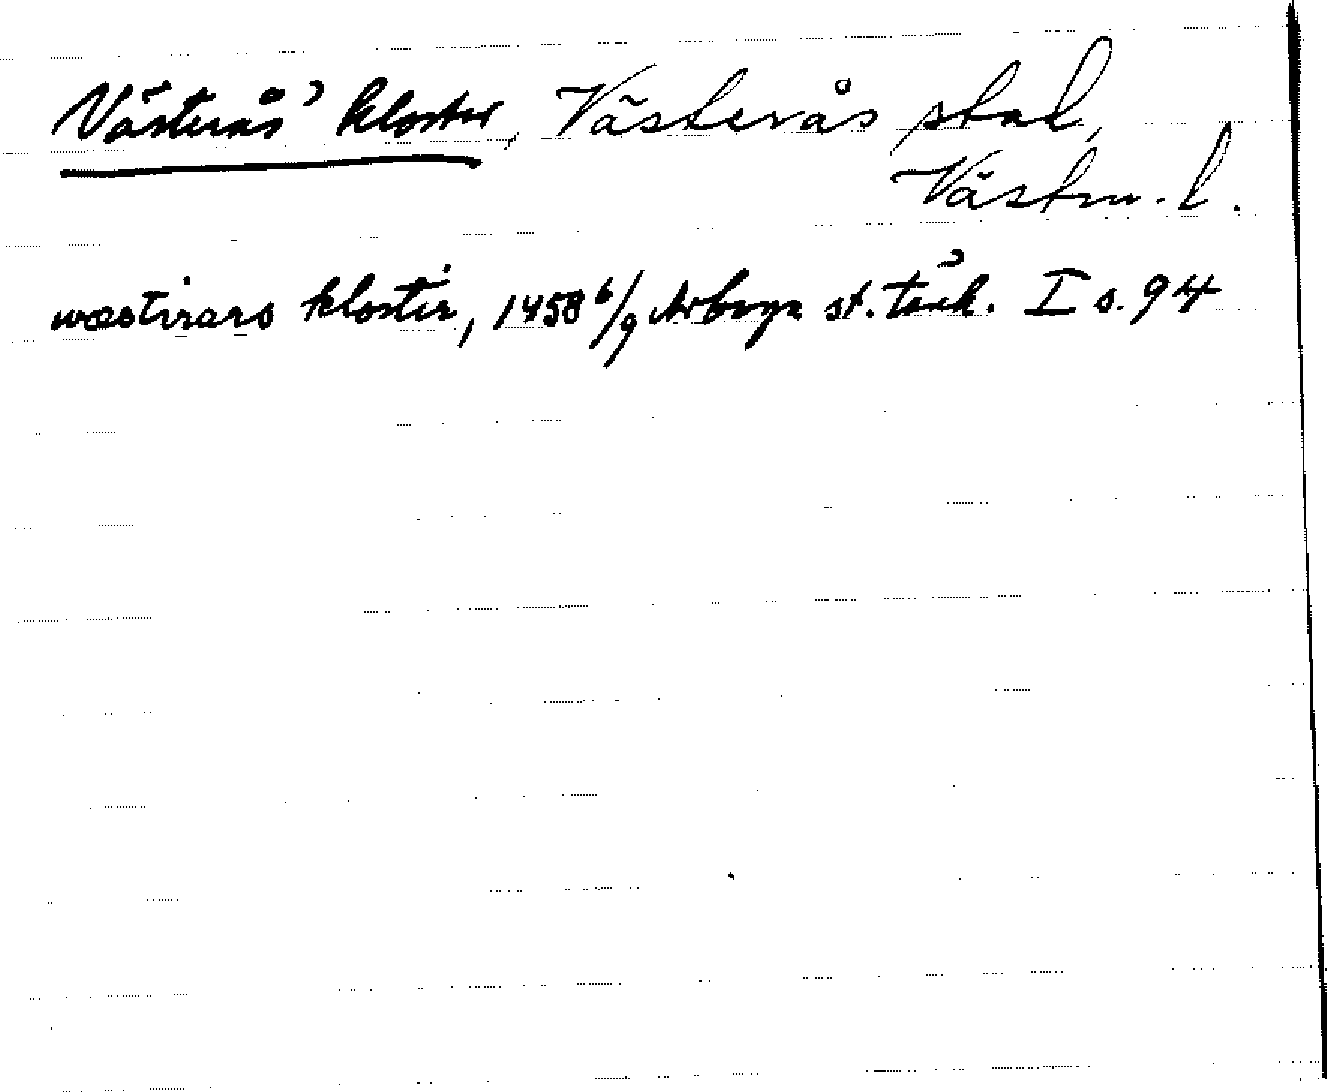 Västerås' kloster, Västerås stad,
Västm. l.
wæstirars klostir, 1458 6/9 Arboga st. tänk. I s. 94